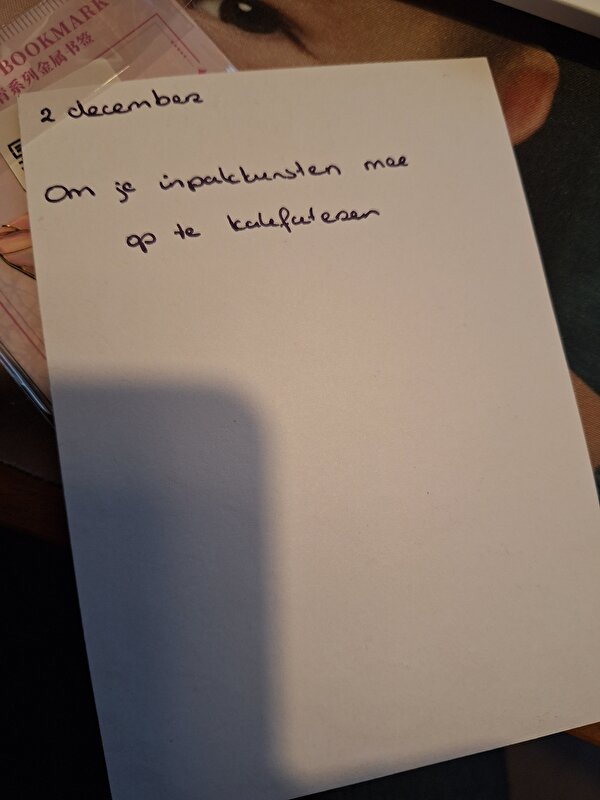 BOOKMARK
系列金属书签
2 december
Om je inpakkunsten mee
op te kalefateren